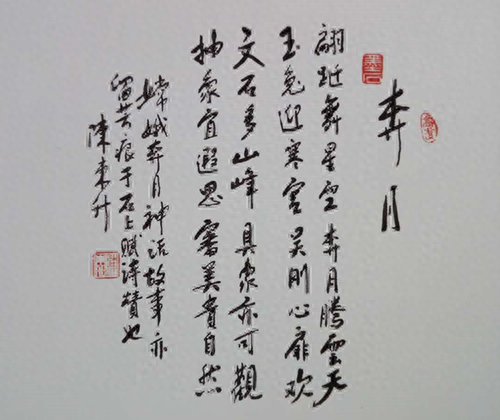 奔月
翩跹舞星空奔月騰雲天
玉兔迎寒宫吴刚心扉欢
文石多山峰具象亦可觀
抽象宜遐思審美貴自然
嫦娥奔月神话故事亦
留芳痕于石上赋诗赞也
陳東升